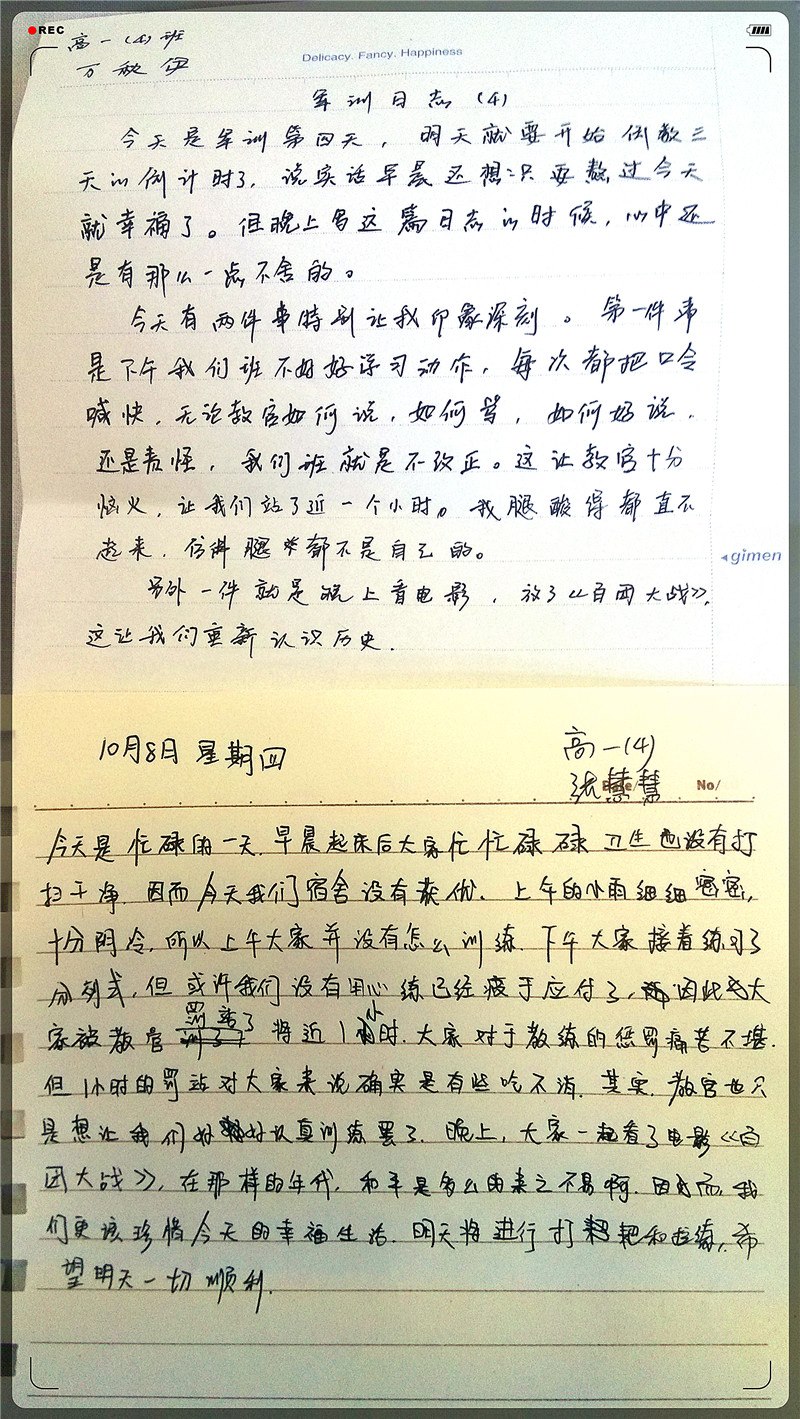 REC
高一(4)班
万秋伊
Delicacy. Fancy. Happiness
军训日志 (4)
今天是军训第四天，明天就要开始倒数三
天的倒计时了，说实话早晨还想：只要熬过今天
就幸福了。但晚上写这篇日志的时候，心中还
是有那么一点不舍的。
今天有两件事特别让我印象深刻。第一件事
是下午我们班不好好学习动作，每次都把口令
喊快，无论教官如何说，如何骂，如何好说，
还是责怪，我们班就是不改正。这让教官十分
恼火，让我们站了近一个小时。我腿酸得都直不
起来，仿料腿都不是自己的。
另外一件就是晚上看电影，放了《百团大战》，
这让我们重新认识历史.
gimen
10月8日 星期四
高一(4)
沈慧慧
Date/ No/
今天是忙碌的一天.早晨起床后大家忙忙碌碌 卫生也没有打
扫干净.因而今天我们宿舍没有获优.上午的小雨细细密密，
十分阴冷.所以上午大家并没有怎么训练.下午大家接着练习了
分列式，但或许我们没有用心练已经疲于应付了，因此大
家被教官罚站了将近1小时.大家对于教练的惩罚痛苦不堪.
但1小时的罚站对大家来说确实是有些吃不消.其实,教官也只
是想让我们好好认真训练罢了.晚上，大家一起看了电影《百
团大战》，在那样的年代，和平是多么的来之不易啊.因而，我
们更该珍惜今天的幸福生活.明天将进行打靶和拉练，希
望明天一切顺利.